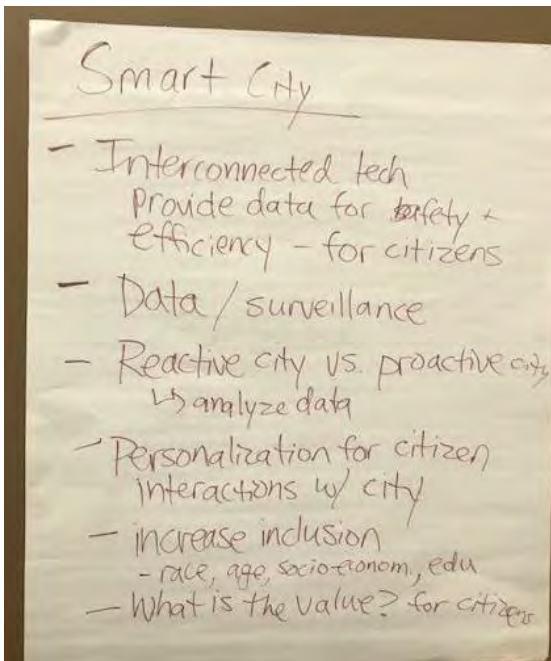 Smart City
- Interconnected tech
Provide data for safety +
efficiency - for citizens
- Data / surveillance
- Reactive city vs. proactive city
↳ analyze data
- Personalization for citizen
interactions w/ city
- increase inclusion
- race, age, socio-econom., edu
- What is the value? for citizens